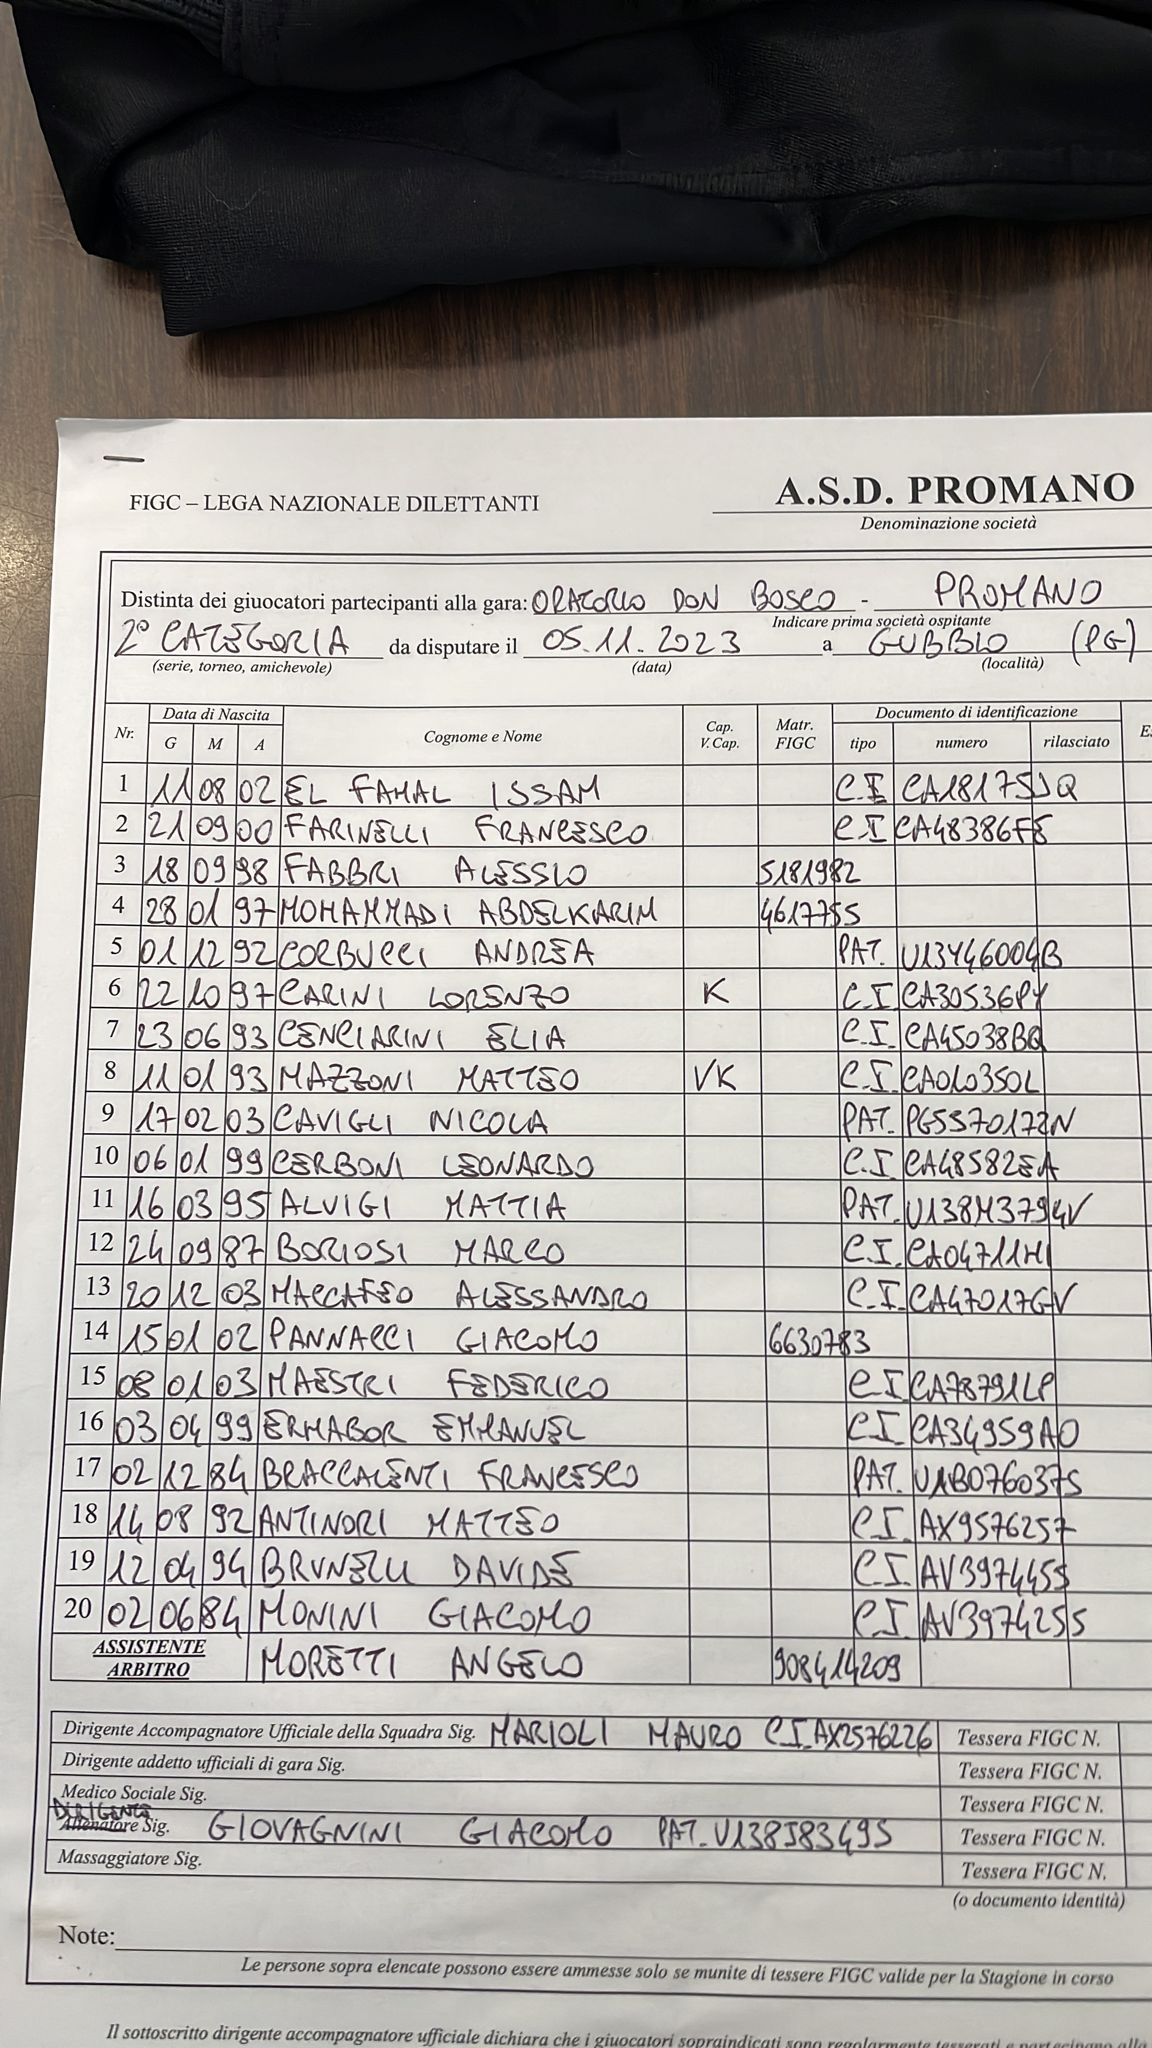 FIGC – LEGA NAZIONALE DILETTANTI
A.S.D. PROMANO
Denominazione società
Distinta dei giuocatori partecipanti alla gara: ORATORIO DON BOSCO - PROMANO
Indicare prima società ospitante
2° CATEGORIA da disputare il 05.11.2023 a GUBBIO (PG)
(serie, torneo, amichevole) (data) (località)
Nr. Data di Nascita Cognome e Nome Cap. V. Cap. Matr. FIGC Documento di identificazione
G M A tipo numero rilasciato
1 11 08 02 EL FAHAL ISSAM C.I CA18175JQ
2 21 09 00 FARINELLI FRANCESCO C.I CA48386FE
3 18 09 98 FABBRI ALESSIO 5181982
4 28 01 97 MOHAMMADI ABDELKARIM 4617755
5 01 12 92 CORBUCCI ANDREA PAT. U13Y46004B
6 22 10 97 CARINI LORENZO K C.I. CA30536PY
7 23 06 93 CENCIARINI ELIA C.I. CA45038BQ
8 11 01 93 MAZZONI MATTEO VK C.I. CA01035OL
9 17 02 03 CAVIGLI NICOLA PAT. PG5570172N
10 06 01 99 CERBONI LEONARDO C.I. CA48582EA
11 16 03 95 ALVIGI MATTIA PAT. U138M3794V
12 24 09 87 BORIOSI MARCO C.I. CA04711HI
13 20 12 03 MACCAFEO ALESSANDRO C.I. CA47017GV
14 15 01 02 PANNACCI GIACOMO 6630783
15 08 01 03 MAESTRI FEDERICO C.I CA78791LP
16 03 04 99 ERHABOR EMMANUEL C.I. CA34959AO
17 02 12 84 BRACCALENTI FRANCESCO PAT. U1B076037S
18 14 08 92 ANTINORI MATTEO C.I. AX9576257
19 12 04 94 BRUNELLI DAVIDE C.I. AV3974455
20 02 06 84 MONINI GIACOMO C.I. AV3974255
ASSISTENTE ARBITRO MORETTI ANGELO 908414209
Dirigente Accompagnatore Ufficiale della Squadra Sig. MARIOLI MAURO C.I. AX2576226 Tessera FIGC N.
Dirigente addetto ufficiali di gara Sig. Tessera FIGC N.
Medico Sociale Sig. Tessera FIGC N.
DIRIGENTE
Allenatore Sig. GIOVAGNINI GIACOMO PAT. U138J8349S Tessera FIGC N.
Massaggiatore Sig. Tessera FIGC N.
(o documento identità)
Note:
Le persone sopra elencate possono essere ammesse solo se munite di tessere FIGC valide per la Stagione in corso
Il sottoscritto dirigente accompagnatore ufficiale dichiara che i giuocatori sopraindicati sono regolarmente tesserati e partecipano alla